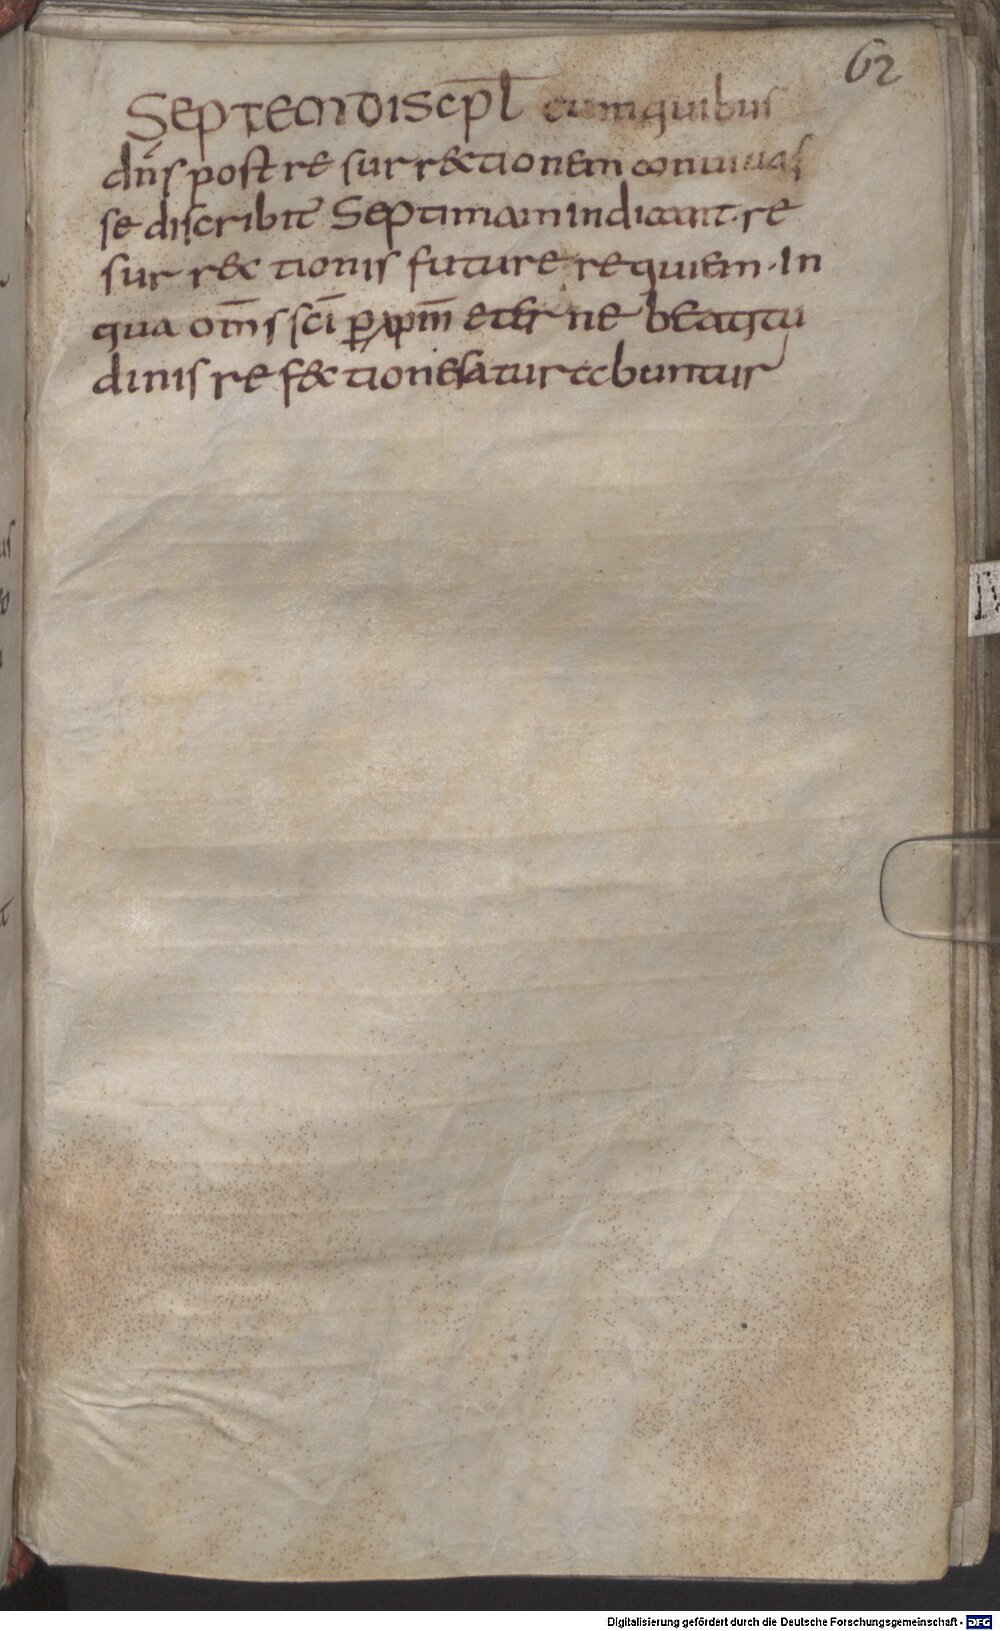 62
Septem discp̄l cum quibus
dn̄s post resurrectionem conuiuas
se discribit̄ Septimam indicant · re
surrectionis future requiem · In
qua om̄s sc̄i ꝑ xp̄m eterne beatitu
dinis refectione saturabuntur
Digitalisierung gefördert durch die Deutsche Forschungsgemeinschaft - DFG